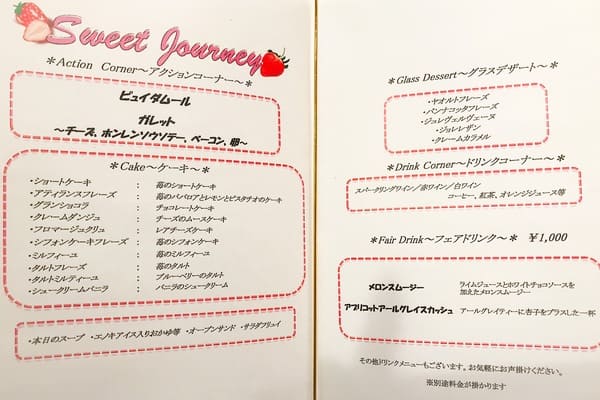 Sweet Journey
＊Action Corner～アクションコーナー～＊
ピュイダムール
ガレット
～チーズ、ホンレンソウソテー、ベーコン、卵～
＊Cake～ケーキ～＊
・ショートケーキ ： 苺のショートケーキ
・アティランスフレーズ ： 苺のババロアとレモンとピスタチオのケーキ
・グランショコラ ： チョコレートケーキ
・クレームダンジュ ： チーズのムースケーキ
・フロマージュクリュ ： レアチーズケーキ
・シフォンケーキフレーズ ： 苺のシフォンケーキ
・ミルフィーユ ： 苺のミルフィーユ
・タルトフレーズ ： 苺のタルト
・タルトミルティーユ ： ブルーベリーのタルト
・シュークリームバニラ ： バニラのシュークリーム
・本日のスープ ・エノキアイス入りおかゆ等 ・オープンサンド ・サラダフリュイ
＊Glass Dessert～グラスデザート～＊
・ヤオルトフレーズ
・パンナコッタフレーズ
・ジュレヴェルヴェーヌ
・ジュレレザン
・クレームカラメル
＊Drink Corner～ドリンクコーナー～＊
スパークリングワイン／赤ワイン／白ワイン
コーヒー、紅茶、オレンジジュース等
＊Fair Drink～フェアドリンク～＊ ￥1,000
メロンスムージー ライムジュースとホワイトチョコソースを
加えたメロンスムージー
アプリコットアールグレイスカッシュ アールグレイティーに杏子をプラスした一杯
その他ドリンクメニューもございます。お気軽にお声掛けください。
※別途料金が掛かります